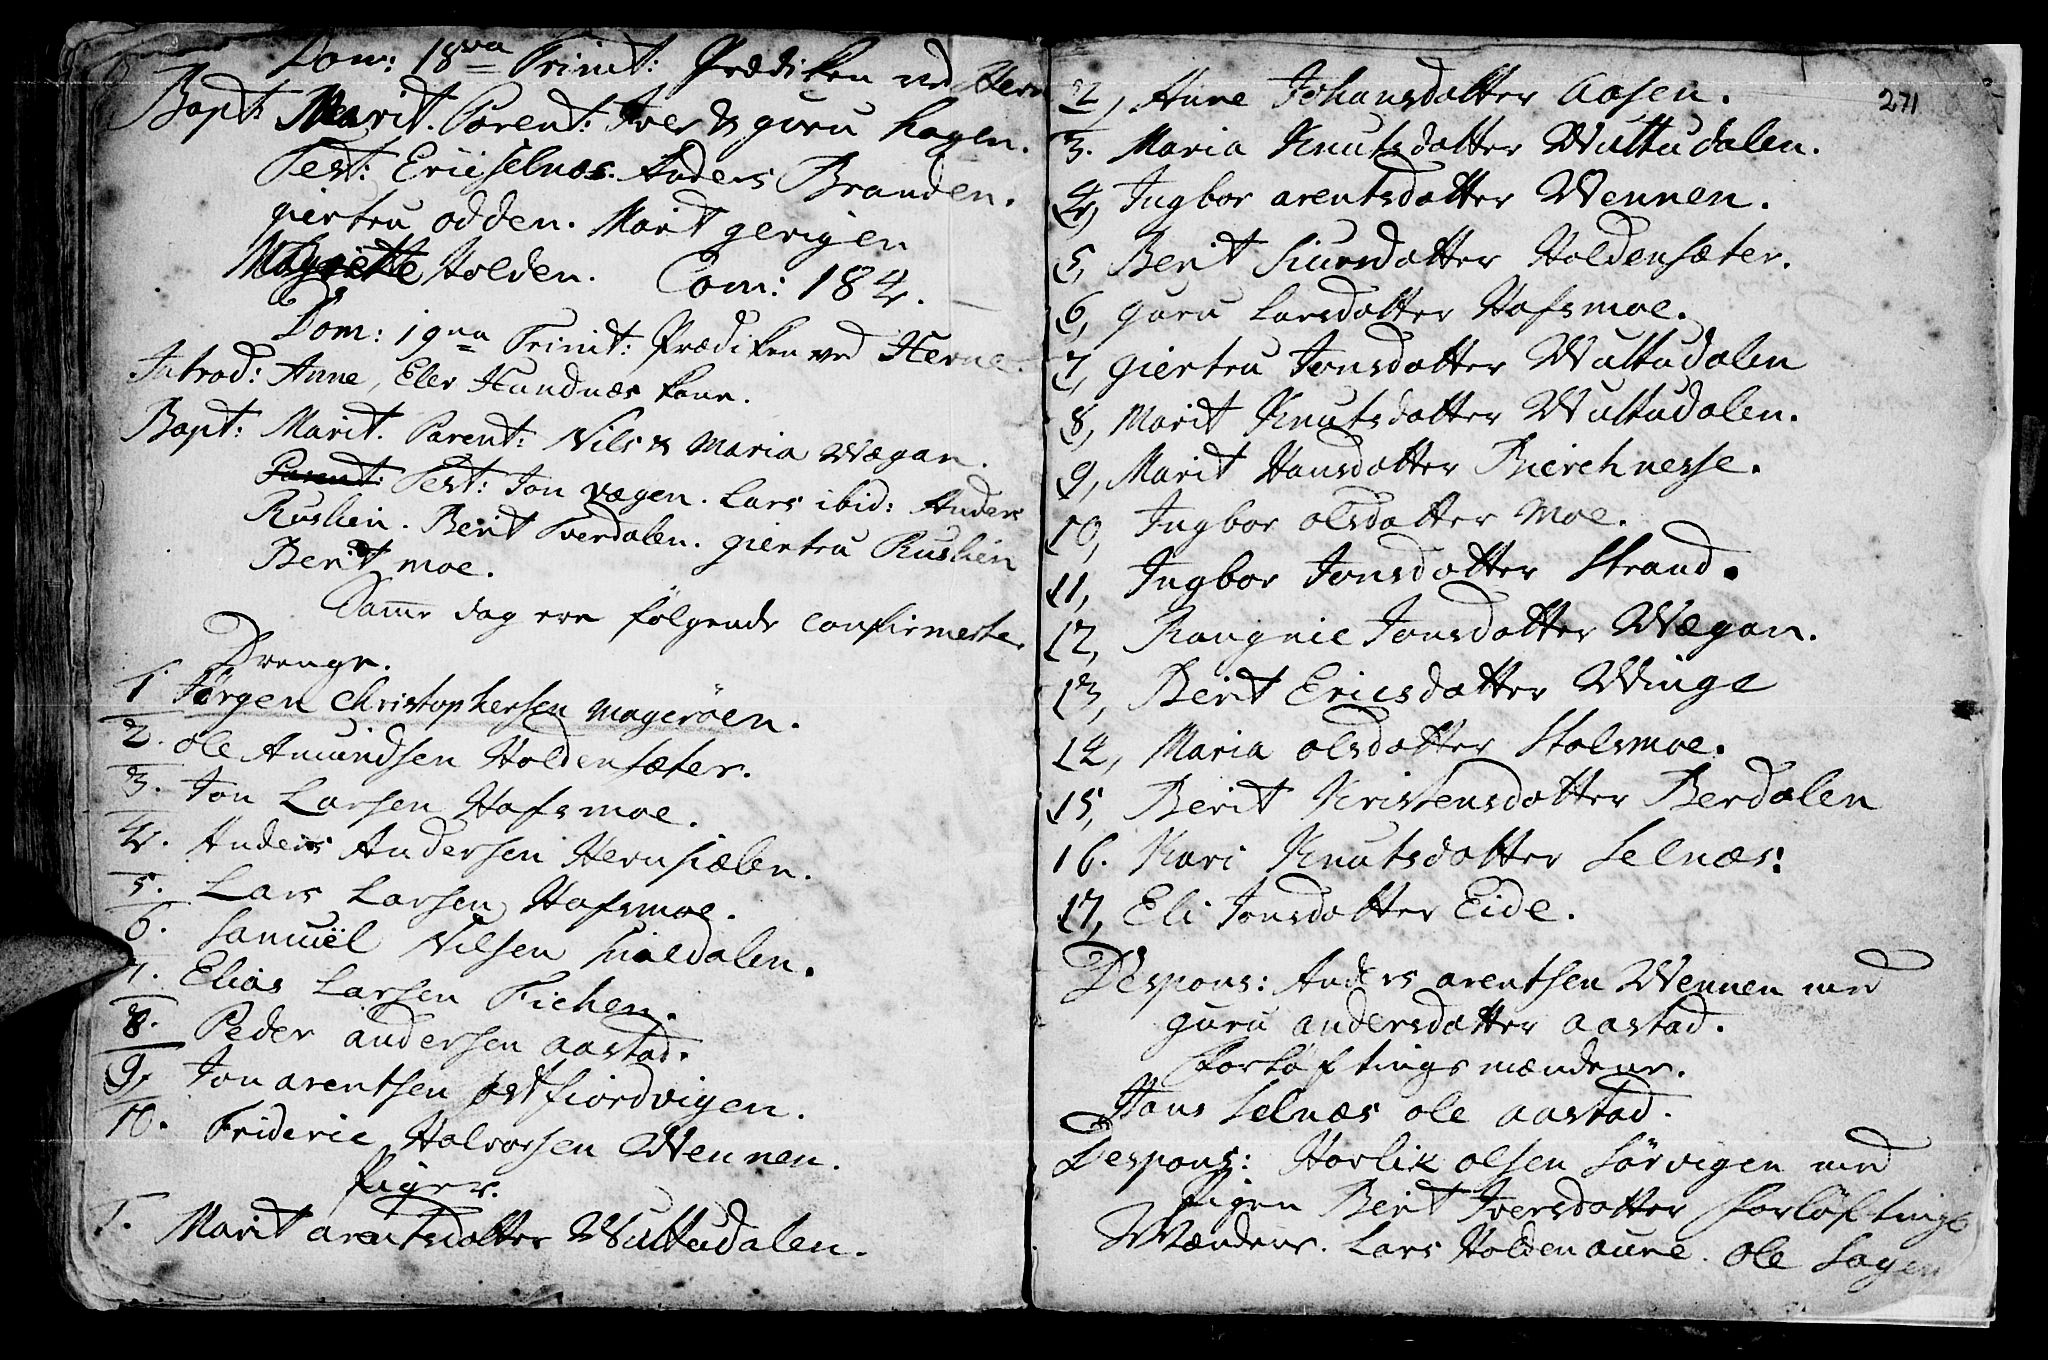 Dom: 18va Trinit: Prædiken ved Hern
Bapt: Marit. Parent: Iver & guru hagen.
Test: Eric selnæs. Anders Branden.
giertru odden. Marit gerigen
Holden. Com: 184.
Dom: 19na Trinit: Prædiken ved Herne.
Introd: Anne, Eler Hundnæs kone.
Bapt: Marit. Parent: Nils & Maria Wægan.
Parent: Test: Jon vægen. Lars ibid: Anders
Rushin. Berit Tverdalen. giertru Rushin
Berit moe.
Samme dag ere følgende confirmerte
Drenge.
1. Jørgen Christophersen Magerøen.
2. ole Amundsen Holdensæter.
3. Jon Larsen Hafsmoe.
4. Anders Andersen Hernsiælen.
5. Lars Larsen Hafsmoe.
6. Samuel Nilsen Snildalen.
7. Elias Larsen Tichen.
8. Peder andersen aastad.
9, Jon arentsen østfiordvigen.
10. Frideric Halvorsen Wennen.
Piger.
1. Marit arentsdatter Wuttudalen.
271
2, Anne Johansdatter Aasen.
3. Maria Knutsdatter Wuttudalen.
4, Ingbor arentsdatter Wennen.
5, Berit Siursdatter Holdensæter.
6, guru Larsdatter Hafsmoe.
7, giertru Jonsdatter Wuttudalen
8, Marit Knutsdatter Wuttudalen.
9, Marit Hansdatter Bierchnesse.
10, Ingbor olsdatter Moe.
11, Ingbor Jonsdatter Strand.
12, Rangnie Jonsdatter Wægan.
13, Berit Ericsdatter Winge
14, Maria olsdatter Stolsmoe.
15, Berit Kristensdatter Berdalen
16. Kari Knutsdatter Selnæs:
17, Eli Jonsdatter Eide.
Despons: Anders arentsen Wennen med
guru andersdatter aastad.
Forløftingsmændene.
Hans Selnæs ole aastad.
Despons: Horlik olsen Sørvigen med
Pigen Berit Iversdatter Forløftings
Mændene. Lars Holdenaune. ole Sagen